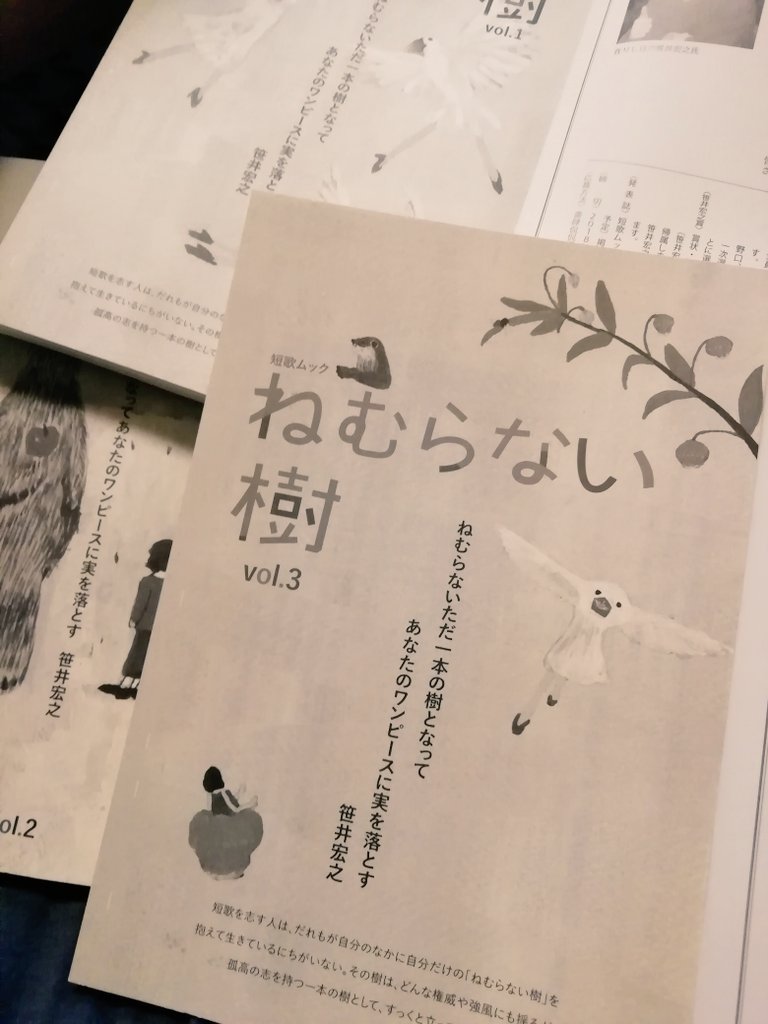 樹
vol.1
むらないただ一本の樹となって
あなたのワンピースに実を落と
笹井宏之
短歌を志す人は、だれもが自分の
抱えて生きているにちがいない。その樹
孤高の志を持つ一本の樹として
ってあなたのワンピースに実を落とす 笹井宏之
ol.2
短歌ムック
ねむらない
樹
vol.3
ねむらないただ一本の樹となって
あなたのワンピースに実を落とす
笹井宏之
短歌を志す人は、だれもが自分のなかに自分だけの「ねむらない樹」を
抱えて生きているにちがいない。その樹は、どんな権威や強風にも揺る
孤高の志を持つ一本の樹として、すっくと立っ